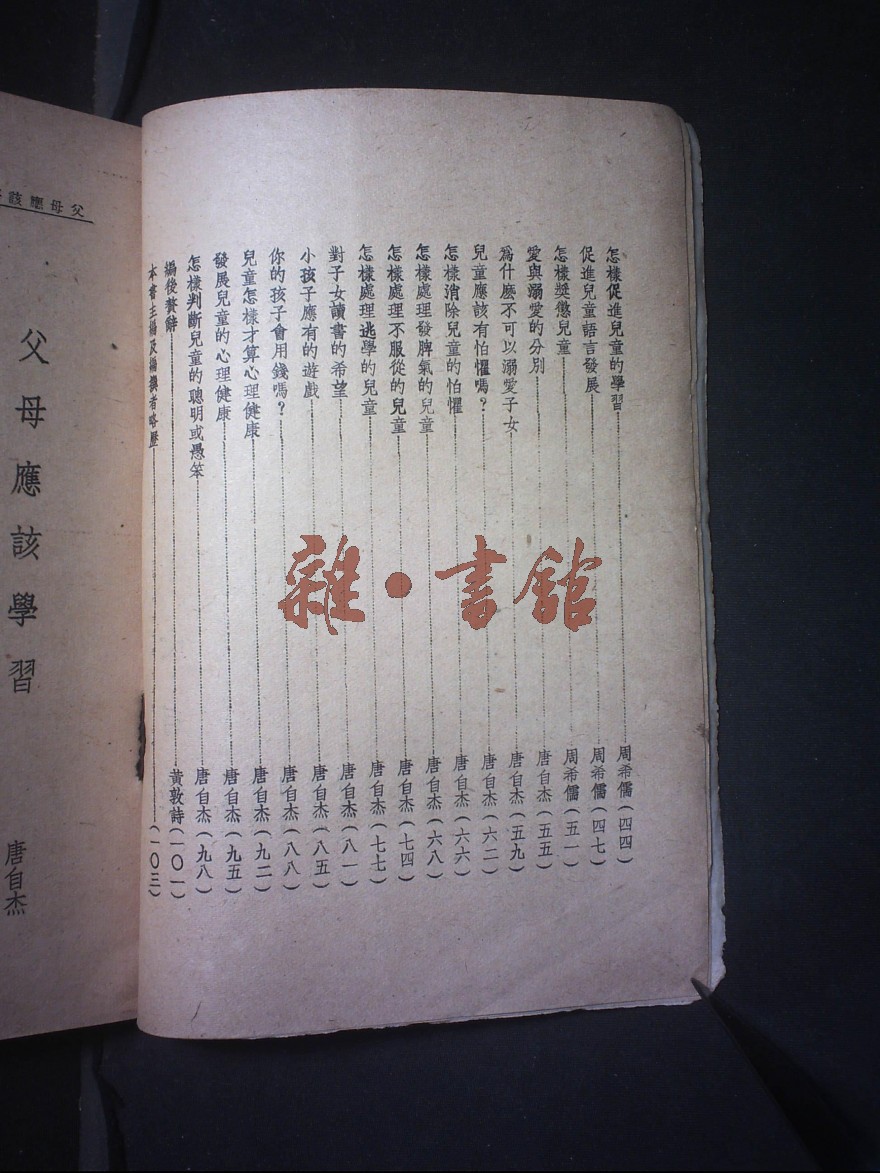 怎樣促進兒童的學習………周希儒(四四)
促進兒童語言發展………周希儒(四七)
怎樣獎懲兒童………周希儒(五一)
愛與溺愛的分別………唐自杰(五五)
爲什麽不可以溺愛子女………唐自杰(五九)
兒童應該有怕懼嗎?………唐自杰(六二)
怎樣消除兒童的怕懼………唐自杰(六六)
怎樣處理發脾氣的兒童………唐自杰(六八)
怎樣處理不服從的兒童………唐自杰(七四)
怎樣處理逃學的兒童………唐自杰(七七)
對子女讀書的希望………唐自杰(八一)
小孩子應有的遊戲………唐自杰(八五)
你的孩子會用錢嗎?………唐自杰(八八)
兒童怎樣才算心理健康………唐自杰(九二)
發展兒童的心理健康………唐自杰(九五)
怎樣判斷兒童的聰明或愚笨………唐自杰(九八)
編後贅辭………黃敦詩(一〇一)
本書主編及編撰者略歷………(一〇三)
父母應該
父母應該學習
唐自杰
雜·書館